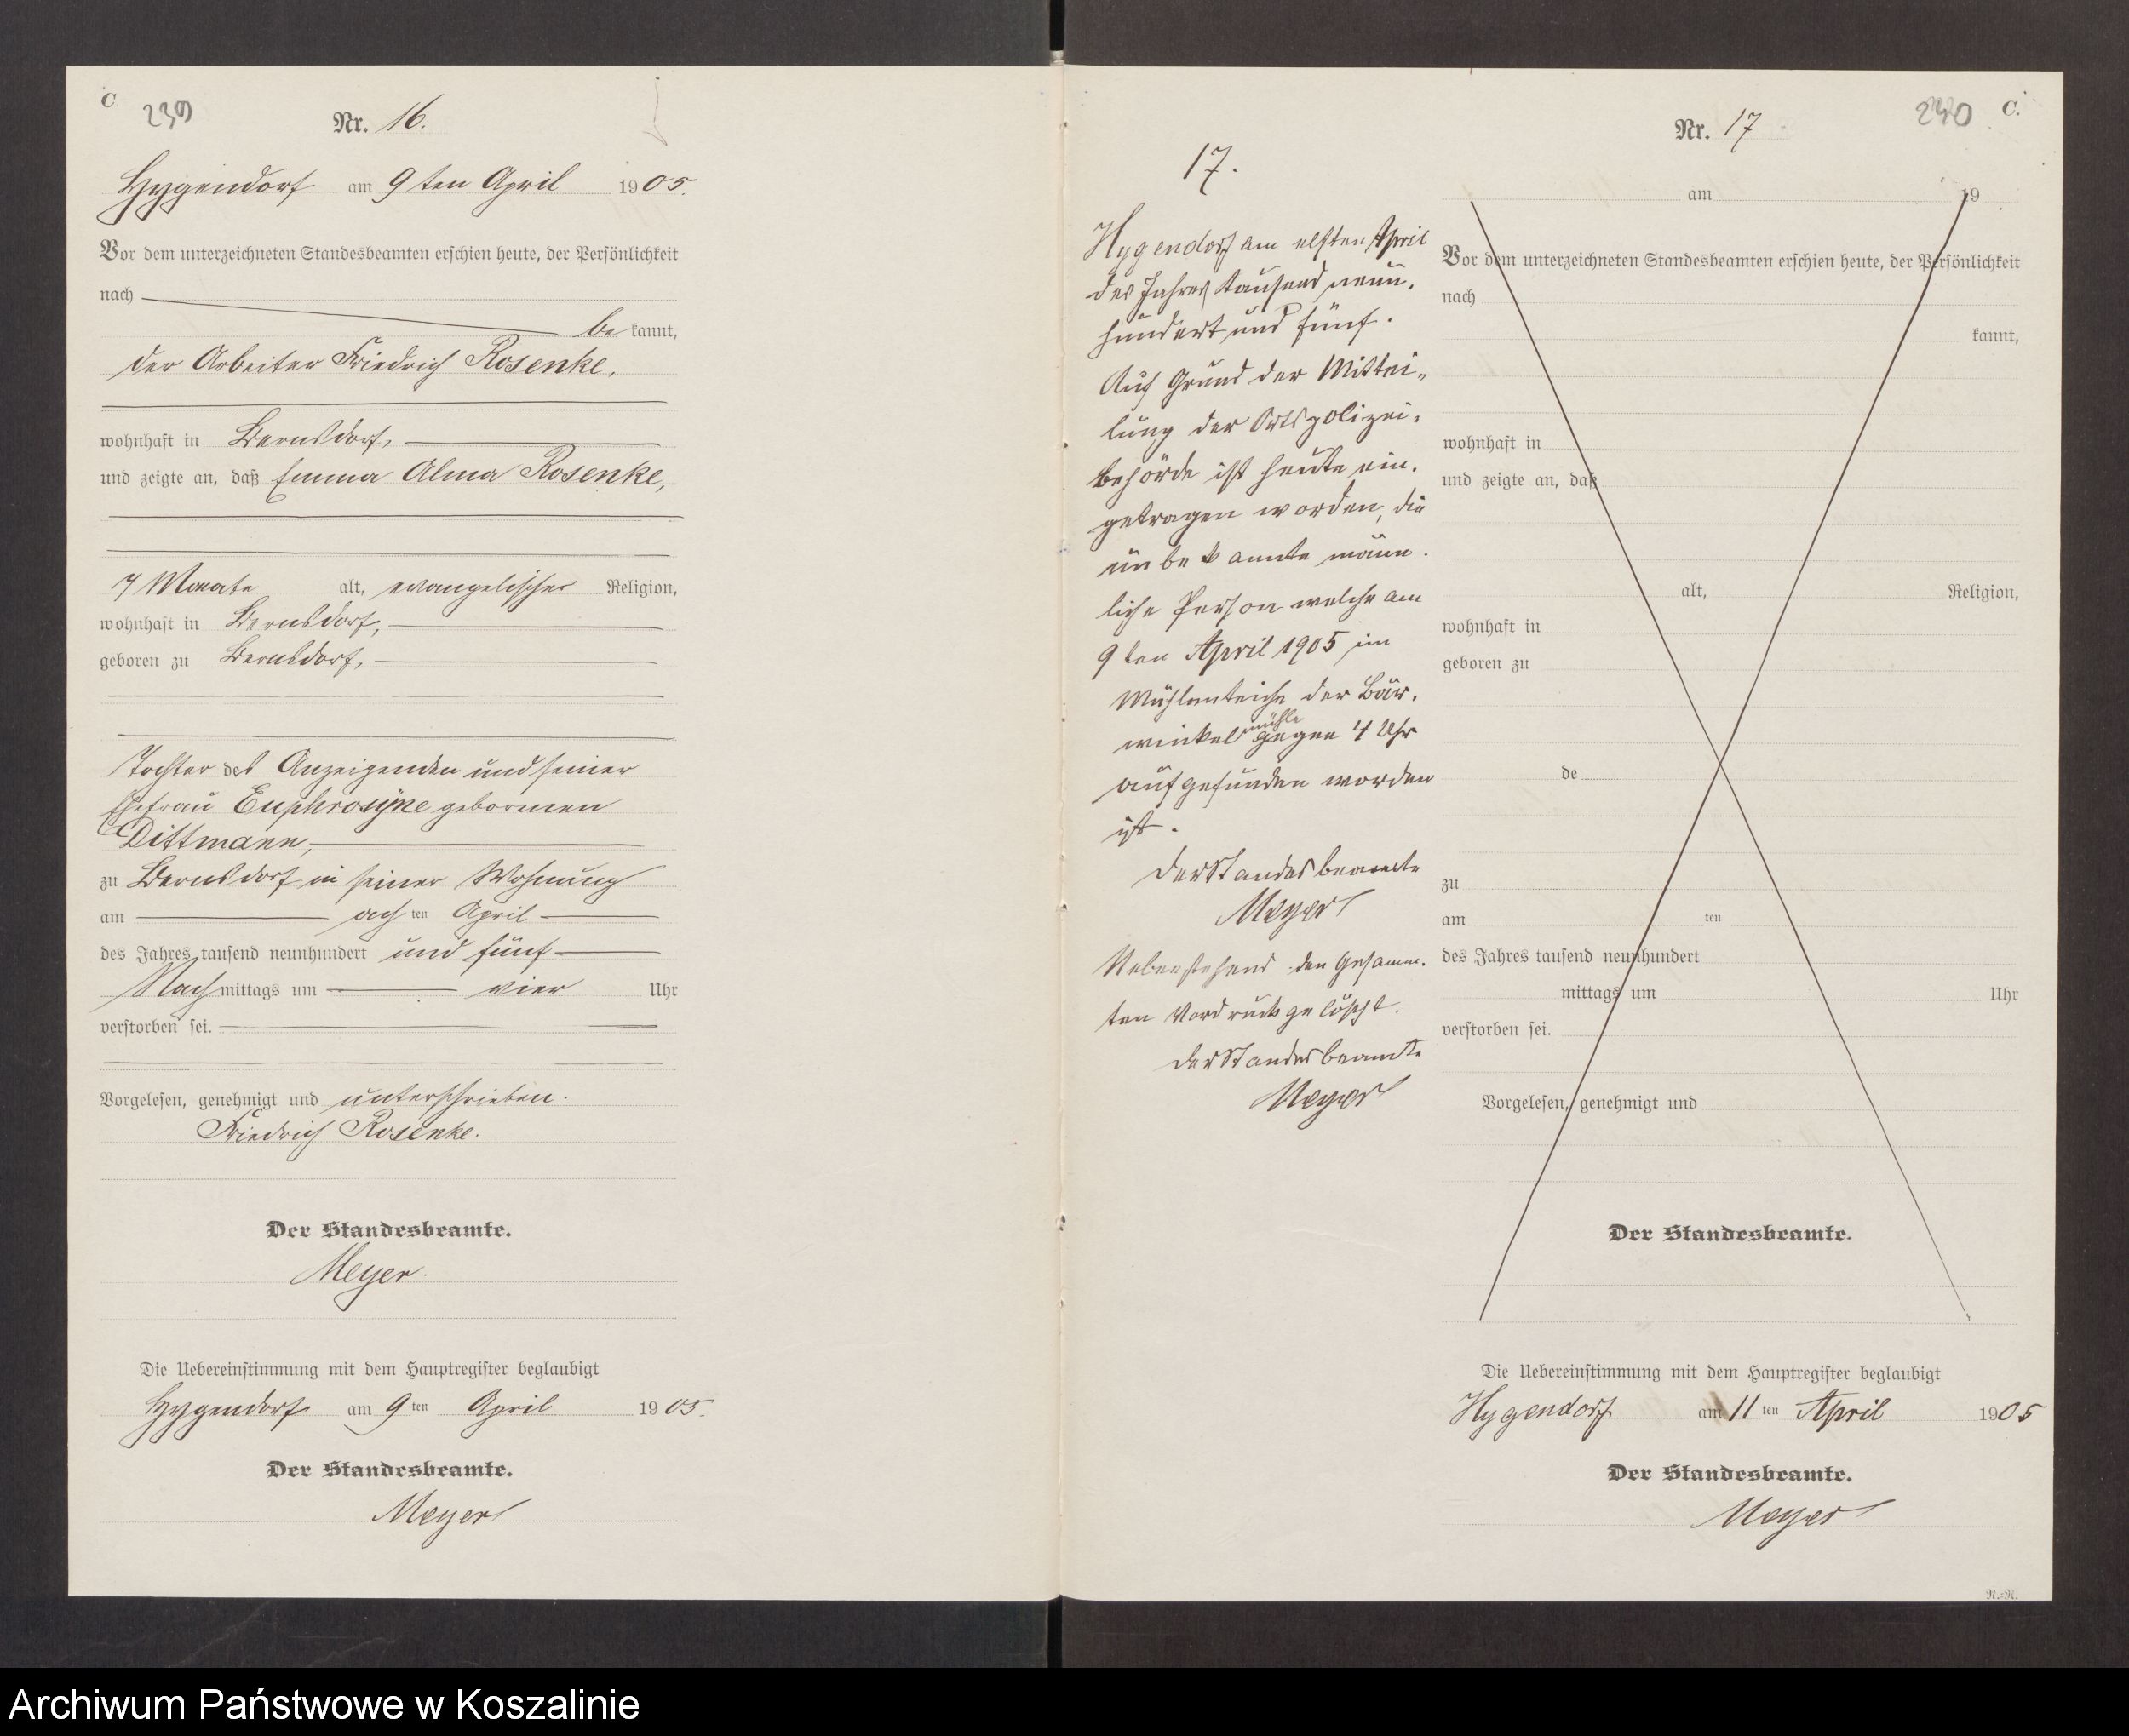 C
239
Nr. 16.
Hygendorf am 9ten April 1905.
Vor dem unterzeichneten Standesbeamten erschien heute, der Persönlichkeit
nach
be kannt,
der Arbeiter Friedrich Rosenke,
wohnhaft in Bernsdorf,
und zeigte an, daß Emma Alma Rosenke,
7 Monate alt, evangelischer Religion,
wohnhaft in Bernsdorf,
geboren zu Bernsdorf,
Tochter des Anzeigenden und seiner
Ehefrau Euphrosyne geborenen
Dittmann,
zu Bernsdorf in seiner Wohnung
am ach ten April
des Jahres tausend neunhundert und fünf
Nach mittags um vier Uhr
verstorben sei.
Vorgelesen, genehmigt und unterschrieben.
Friedrich Rosenke.
Der Standesbeamte.
Meyer.
Die Uebereinstimmung mit dem Hauptregister beglaubigt
Hygendorf am 9 ten April 1905.
Der Standesbeamte.
Meyer
17.
Hygendorf am elften April
des Jahres tausend neun-
hundert und fünf.
Auf Grund der Mittei-
lung der Ortspolizei-
behörde ist heute ein-
getragen worden, die
unbekannte männ-
liche Person welche am
9ten April 1905 im
Mühlenteiche der Bär-
winkelmühle gegen 4 Uhr
aufgefunden worden
ist.
Der Standesbeamte
Meyer
Nebenstehend den gesamm-
ten Vordruck gelöscht.
Der Standesbeamte
Meyer
Nr. 17
240 C.
am 19
Vor dem unterzeichneten Standesbeamten erschien heute, der Persönlichkeit
nach
kannt,
wohnhaft in
und zeigte an, daß
alt, Religion,
wohnhaft in
geboren zu
de
zu
am ten
des Jahres tausend neunhundert
mittags um Uhr
verstorben sei.
Vorgelesen, genehmigt und
Der Standesbeamte.
Die Uebereinstimmung mit dem Hauptregister beglaubigt
Hygendorf am 11 ten April 1905
Der Standesbeamte.
Meyer
R.-R.
Archiwum Państwowe w Koszalinie